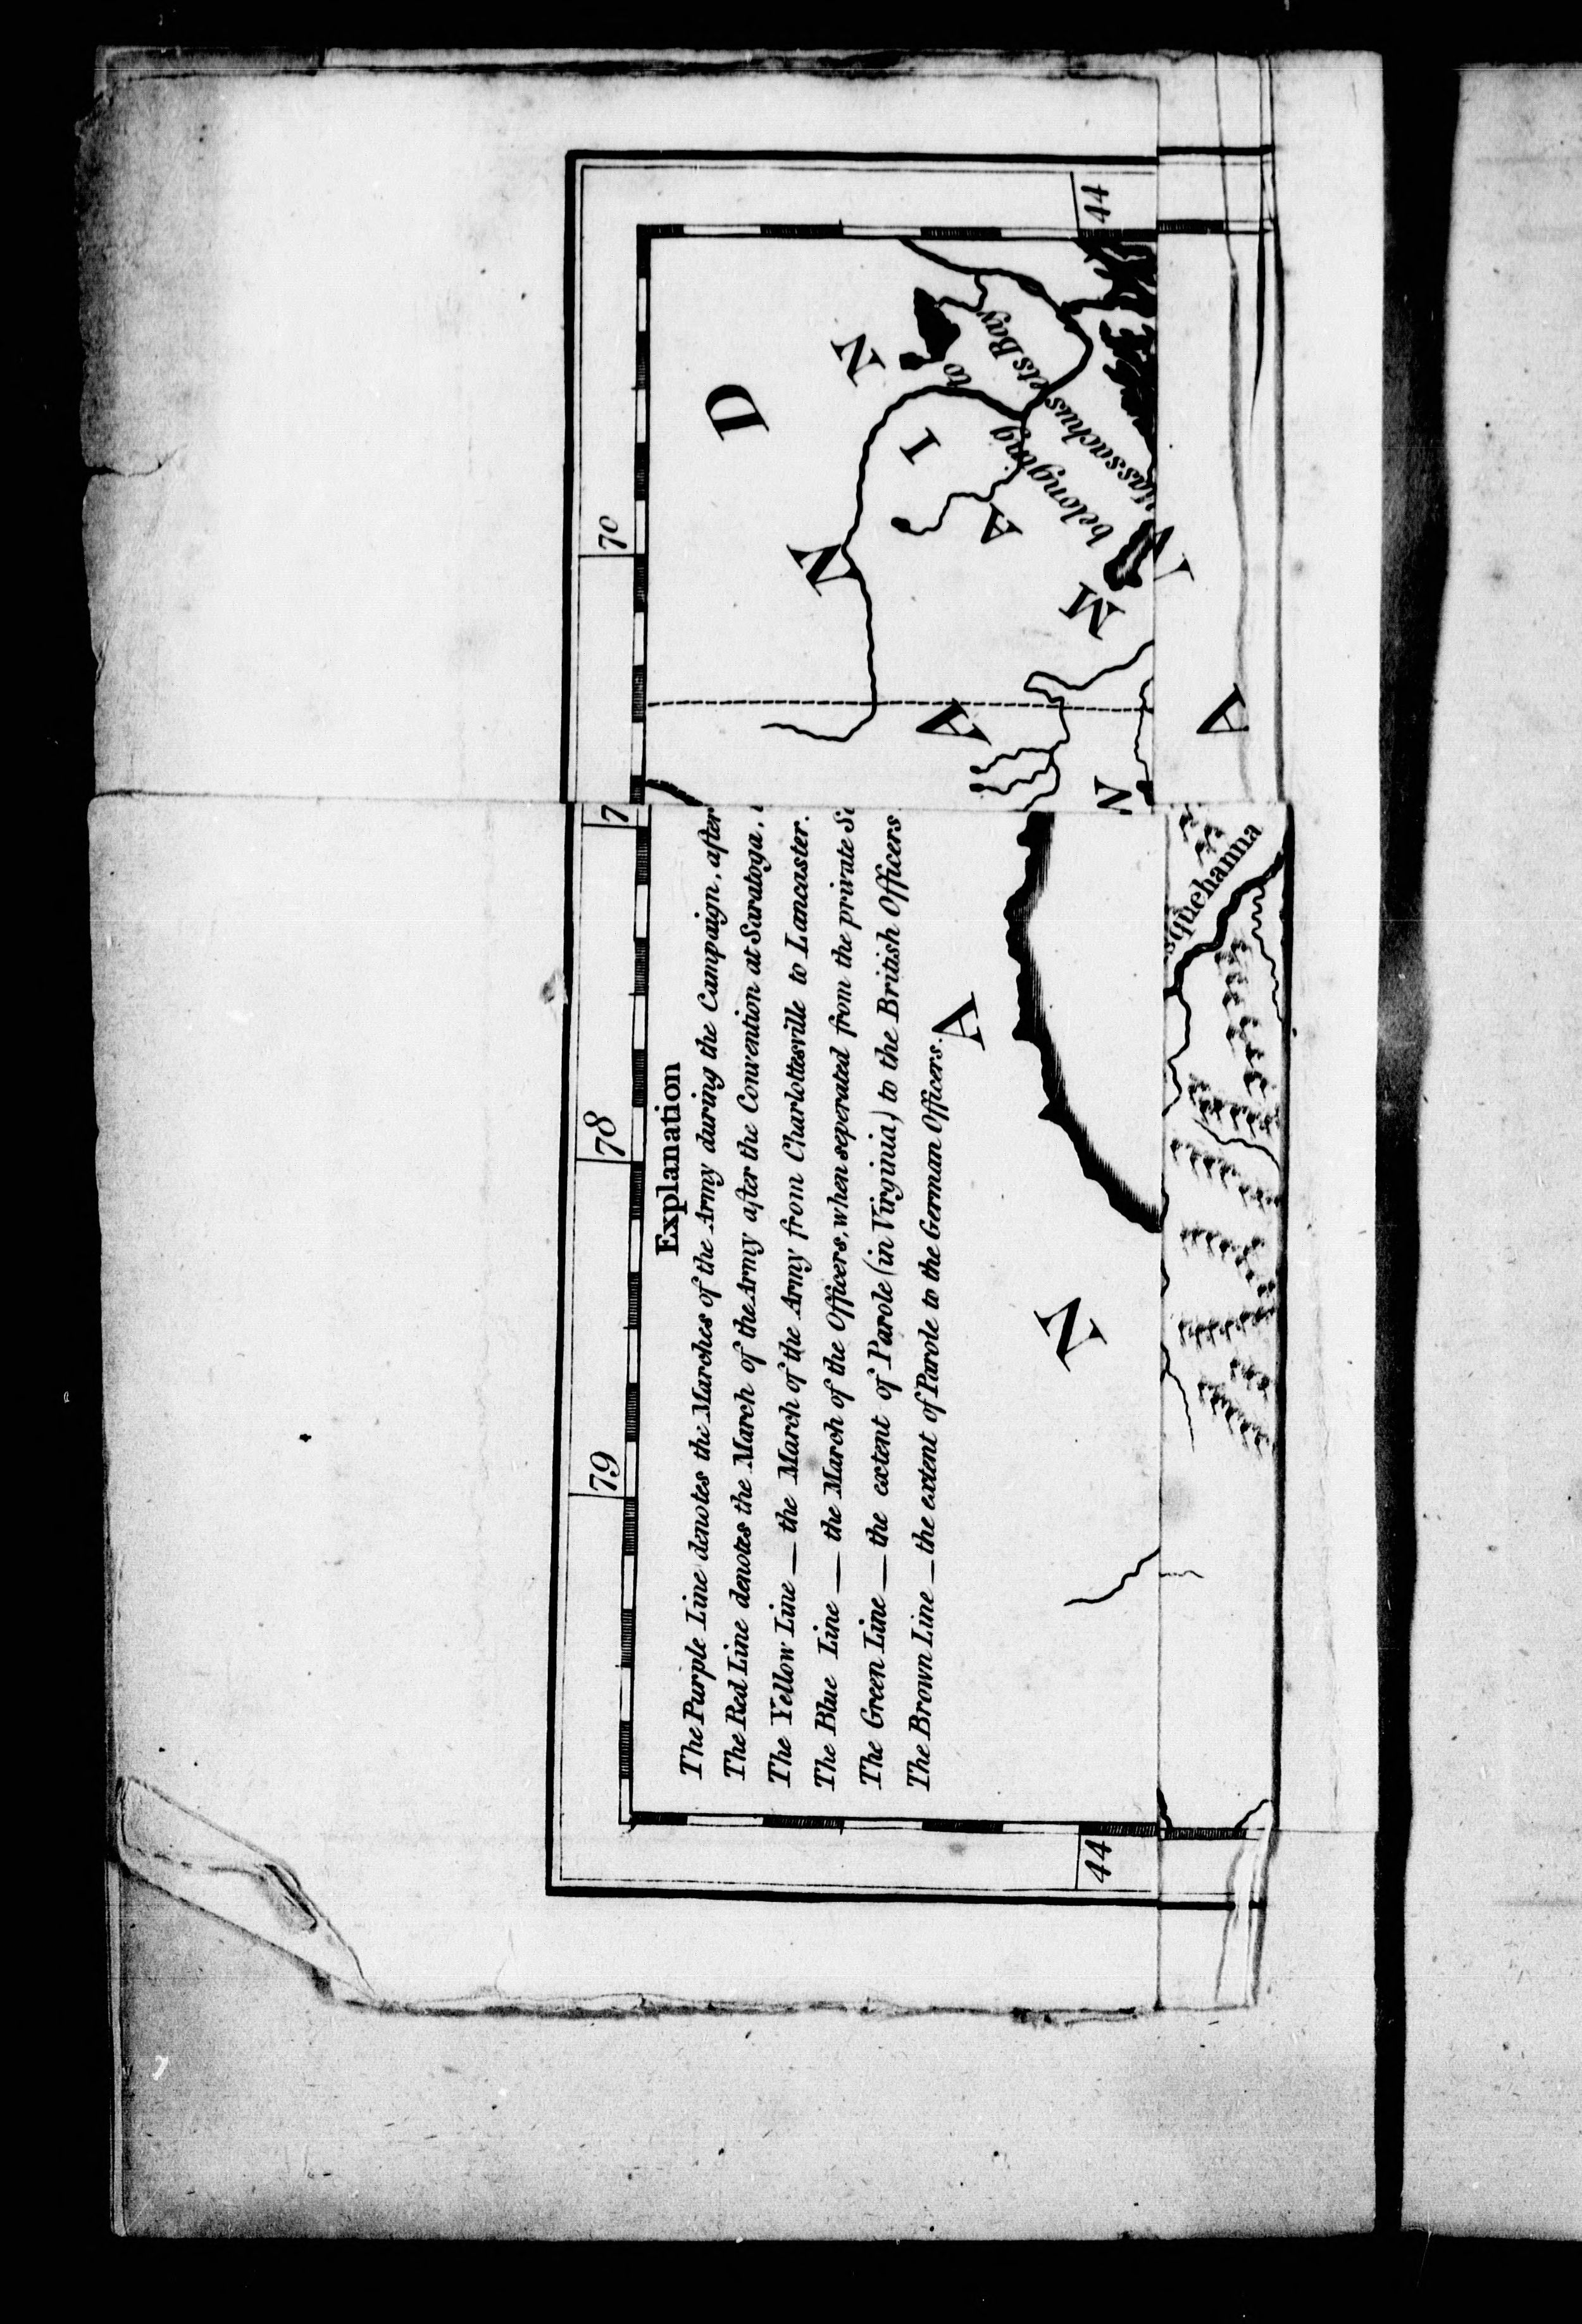 79
78
7
70
Explanation
The Purple Line denotes the Marches of the Army during the Campaign, after
The Red Line denotes the March of the Army after the Convention at Saratoga,
The Yellow Line — the March of the Army from Charlottesville to Lancaster.
The Blue Line — the March of the Officers, when seperated from the private
The Green Line — the extent of Parole (in Virginia) to the British Officers
The Brown Line — the extent of Parole to the German Officers.
N A
N A D
M A I N
belonging to
Massachusets Bay
W
A
N
squehanna
44
44